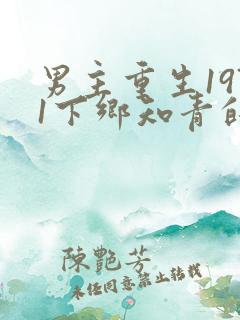 男主重生19
1下鄉知青的
陳艷芳
未任同意禁止轉載